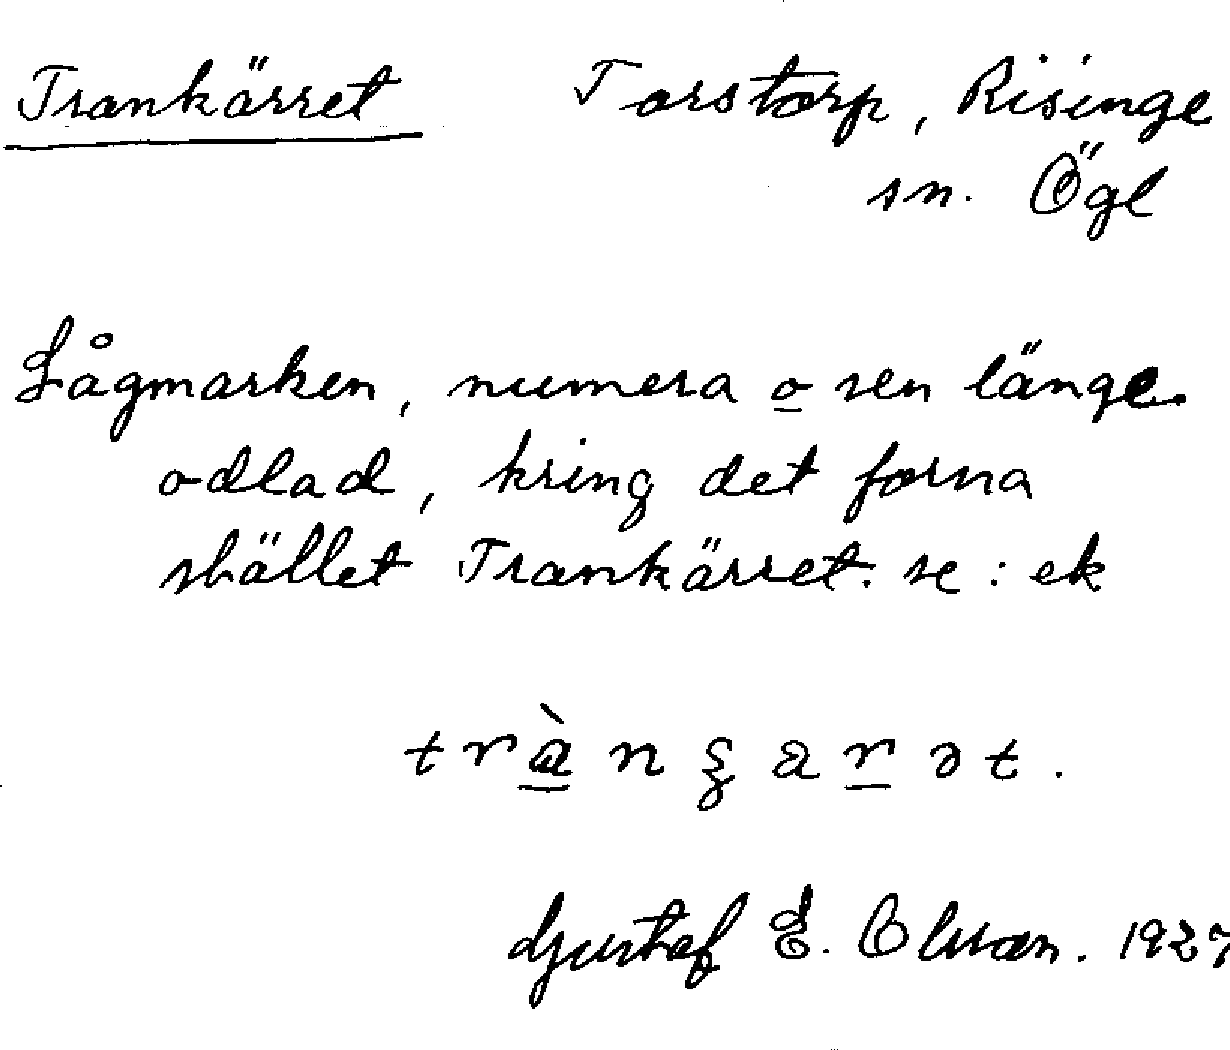 Trankärret Torstorp, Risinge
sn. Ögl
Lågmarken, numera o sen länge
odlad, kring det forna
stället Trankärret. se: ek
Gustaf E. Olsson. 1927